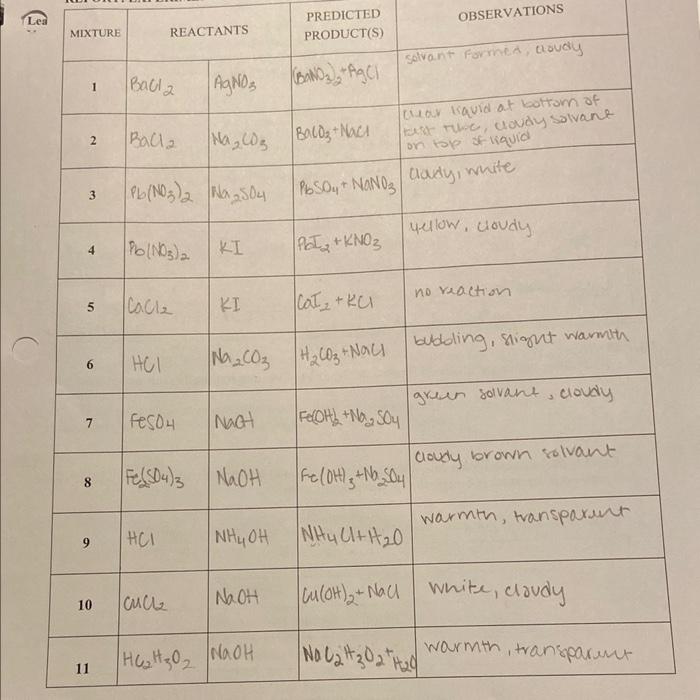 Lea
MIXTURE REACTANTS PREDICTED PRODUCT(S) OBSERVATIONS
1 BaCl2 AgNO3 (BaNO3)2+AgCl solvant formed, cloudy
2 BaCl2 Na2CO3 BaCO3+NaCl clear liquid at bottom of
test tube, cloudy solvant
on top of liquid
3 Pb(NO3)2 Na2SO4 PbSO4+NaNO3 cloudy, white
4 Pb(NO3)2 KI PbI2+KNO3 yellow, cloudy
5 CaCl2 KI CaI2+KCl no reaction
6 HCl Na2CO3 H2CO3+NaCl bubbling, slight warmth
7 FeSO4 NaOH Fe(OH)2+Na2SO4 green solvant, cloudy
8 Fe2(SO4)3 NaOH Fe(OH)3+Na2SO4 cloudy brown solvant
9 HCl NH4OH NH4Cl+H2O warmth, transparent
10 CuCl2 NaOH Cu(OH)2+NaCl white, cloudy
11 HC2H3O2 NaOH NaC2H3O2+H2O warmth, transparent